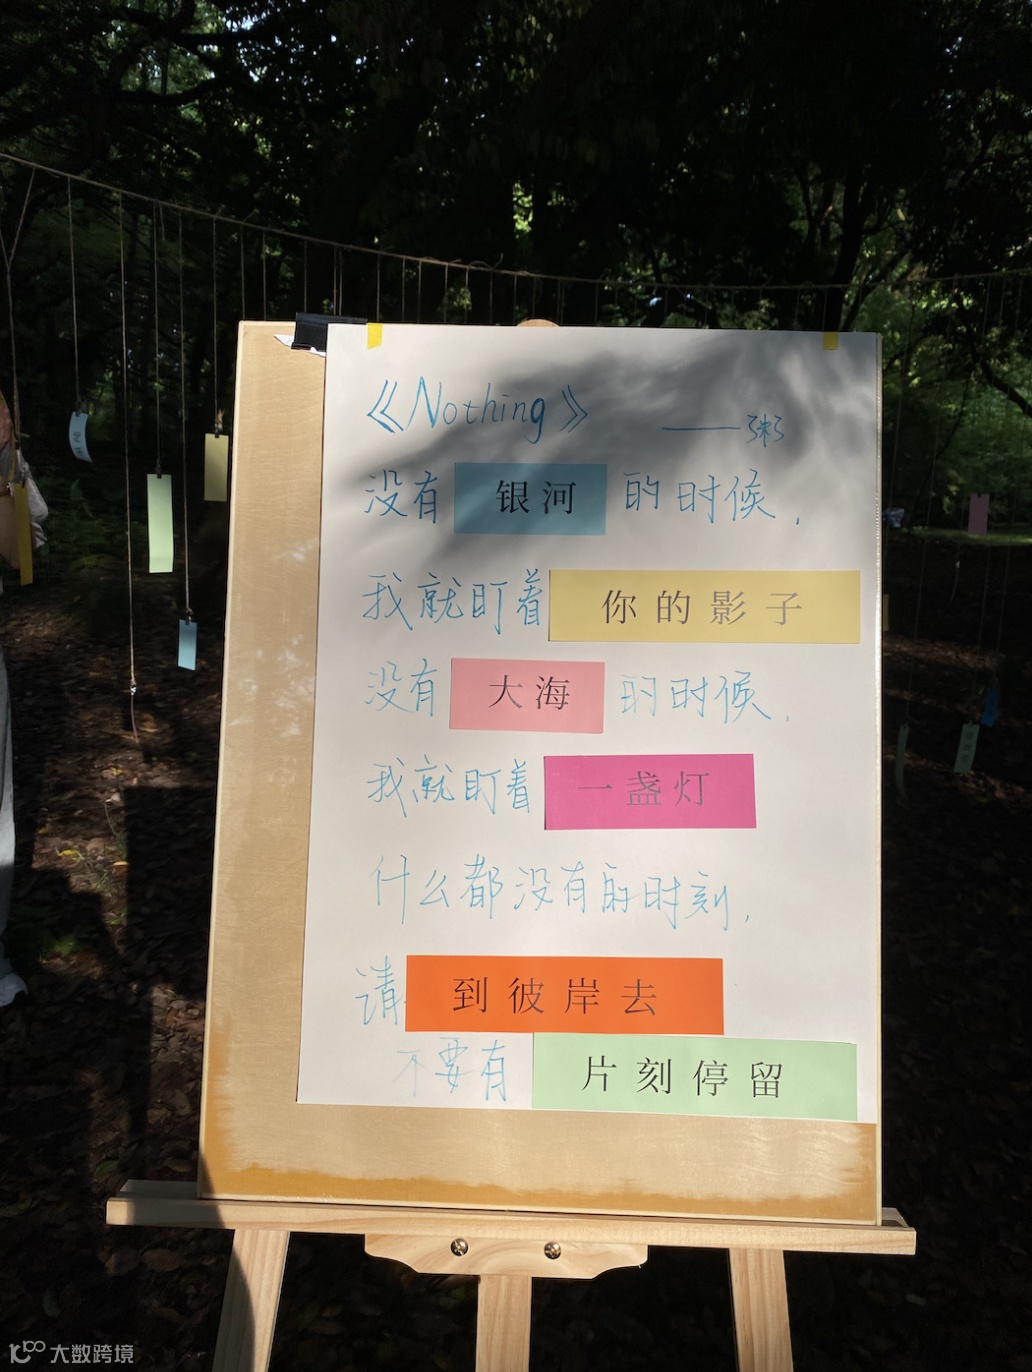 《Nothing》
——粥
没有 银河 的时候，
我就盯着 你的影子
没有 大海 的时候，
我就盯着 一盏灯
什么都没有的时刻，
请 到彼岸去
不要有 片刻停留
大数跨境